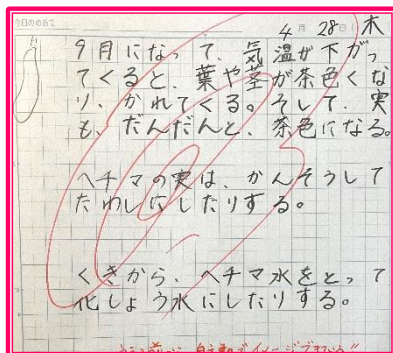 今日のめあて
4月28日(木
9月になって、気温が下がっ
てくると、葉や茎が茶色くな
り、かれてくる。そして、実
も、だんだんと、茶色になる。
ヘチマの実は、かんそうして
たわしにしたりする。
くきから、ヘチマ水をとって
化しょう水にしたりする。